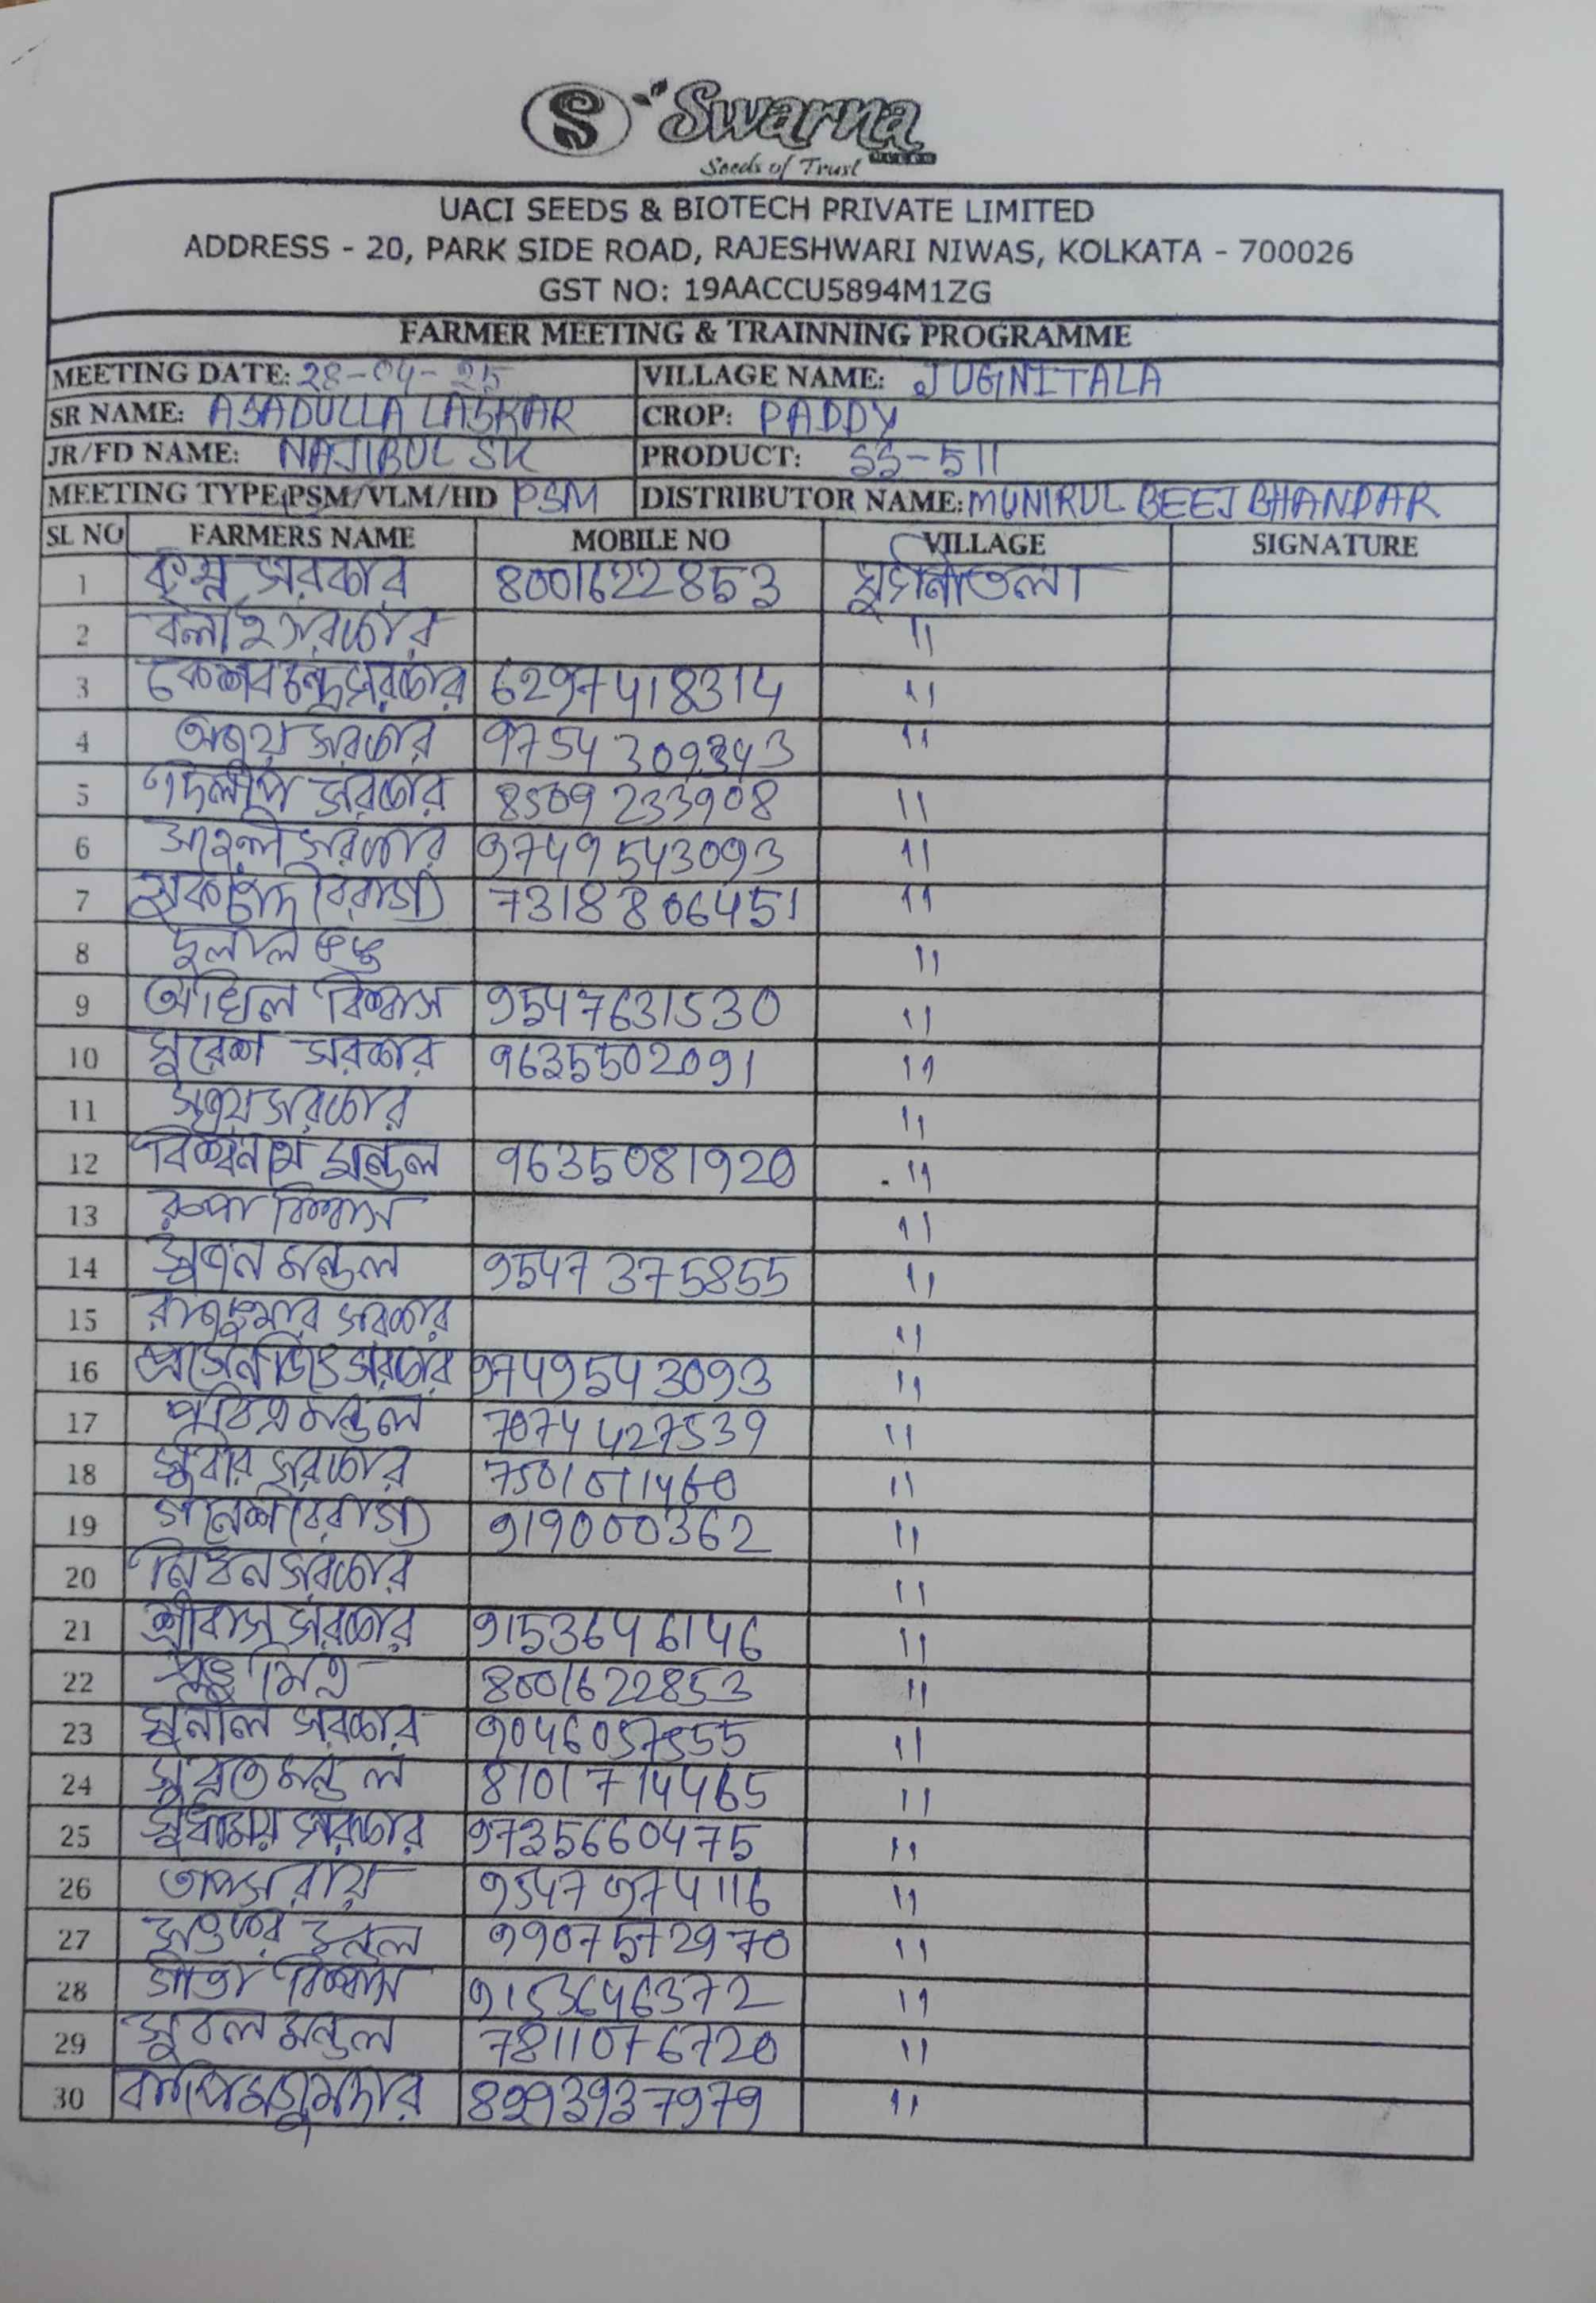 S Swarna
Seeds of Trust
UACI SEEDS & BIOTECH PRIVATE LIMITED
ADDRESS - 20, PARK SIDE ROAD, RAJESHWARI NIWAS, KOLKATA - 700026
GST NO: 19AACCU5894M1ZG
FARMER MEETING & TRAINNING PROGRAMME
MEETING DATE: 28-04-25 VILLAGE NAME: JUGNITALA
SR NAME: ASADULLA LASKAR CROP: PADDY
JR/FD NAME: NAJIBUL SK PRODUCT: SS-511
MEETING TYPE(PSM/VLM/HD PSM DISTRIBUTOR NAME: MUNIRUL BEEJ BHANDAR
SL NO FARMERS NAME MOBILE NO VILLAGE SIGNATURE
1 কৃষ্ণ সরকার 8001622853 যুগনীতলা
2 বলাই সরকার "
3 কেশব চন্দ্র সরকার 6297418314 "
4 অজয় সরকার 9754309343 "
5 দিলীপ সরকার 8509233908 "
6 সরকার 9749543093 "
7 7318806451 "
8 দুলাল "
9 অখিল বিশ্বাস 9547631530 "
10 সুরেশ সরকার 9635502091 "
11 সরকার "
12 বিশ্বনাথ মন্ডল 9635081920 "
13 রুপা বিশ্বাস "
14 সুজন মন্ডল 9547375855 "
15 রাজকুমার সরকার "
16 প্রসেনজিৎ সরকার 9749543093 "
17 পবিত্র মন্ডল 7074427539 "
18 সুবীর সরকার "
19 গনেশ 919000362 "
20 নিধন সরকার "
21 শ্রীবাস সরকার 9153646146 "
22 মিত্র 8001622853 "
23 সুনীল সরকার "
24 সুব্রত মন্ডল 8101714465 "
25 সুধাময় সরকার 9735660475 "
26 তাপস রায় 9547974116 "
27 9907572970 "
28 গীতা বিশ্বাস 9153646372 "
29 সুবল মন্ডল 7811076720 "
30 বাপি মজুমদার "